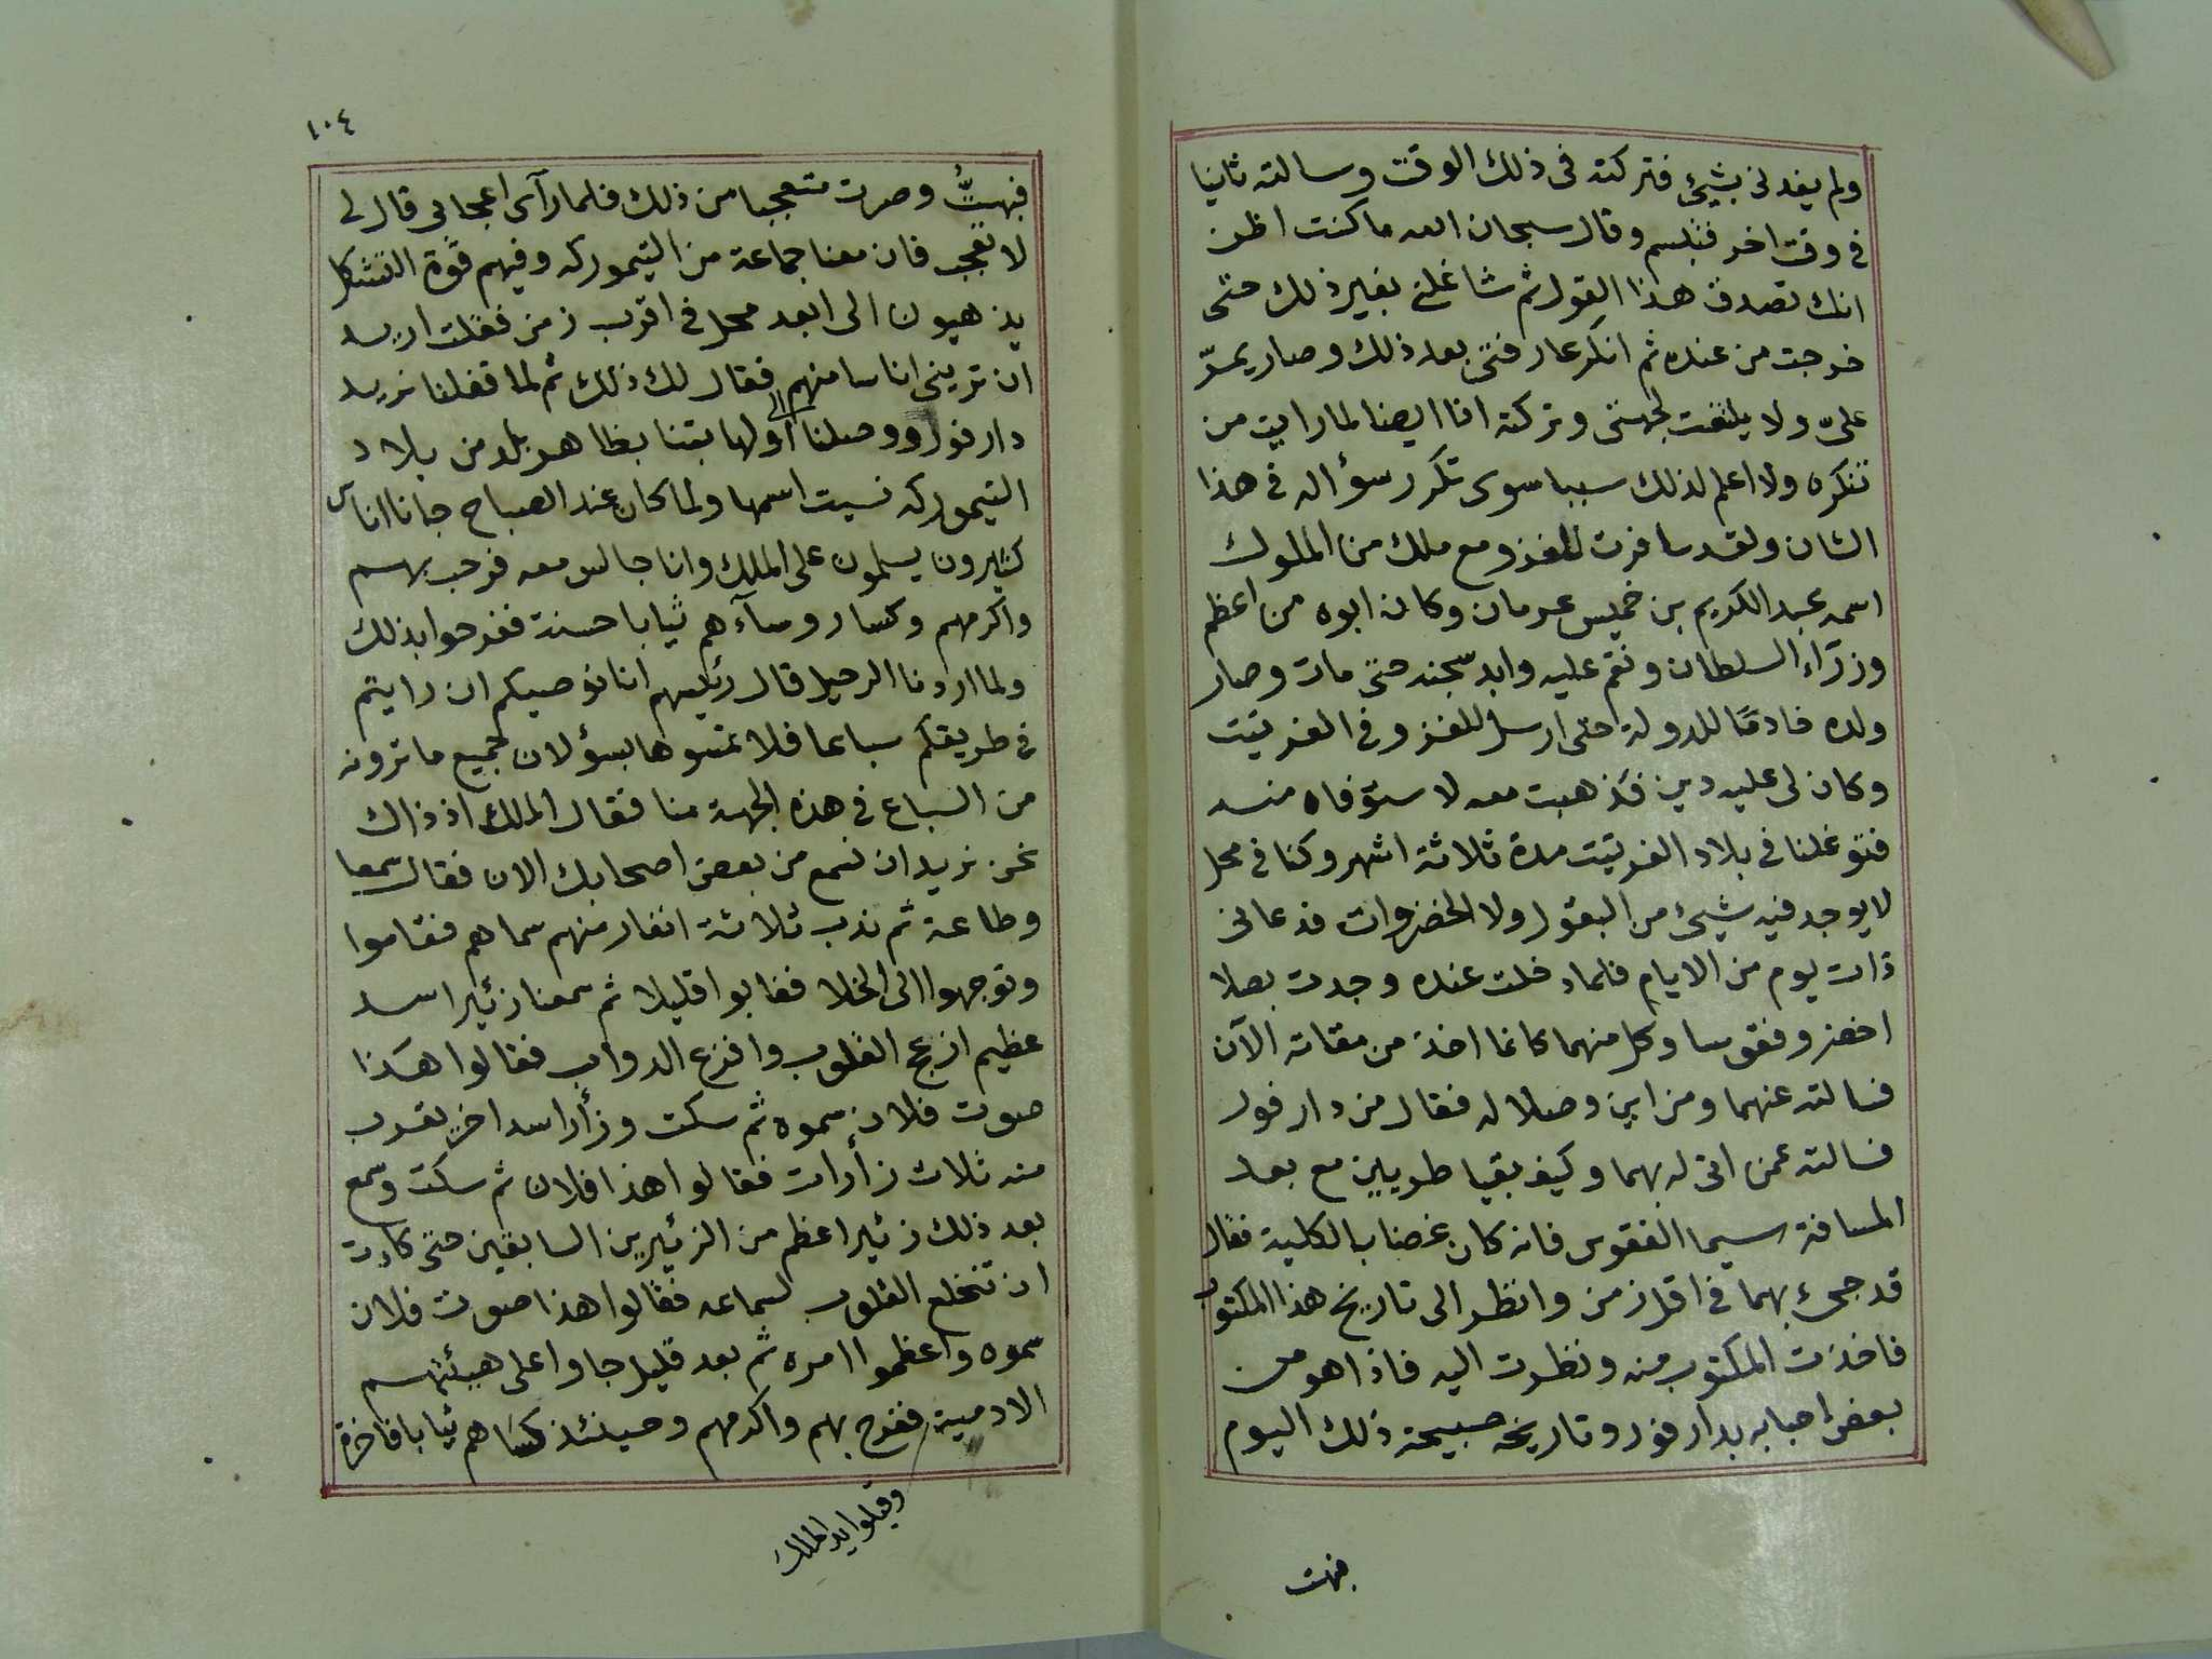 ولم يفدنى بشيئ فتركته فى ذلك الوقت وسالته ثانيا
فى وقت اخر فتبسم وقال سبحان الله ما كنت اظن
انك تصدق هذا القول ثم شاغلنى بغير ذلك حتى
خرجت من عنده ثم انكر عارفتى بعد ذلك وصار يمرّ
علىّ ولا يلتفت لجهتى وتركته انا ايضا لما رايت من
تنكره ولا اعلم لذلك سببا سوى تكرر سؤاله فى هذا
الشان ولقد سافرت للغزو مع ملك من الملوك
اسمه عبد الكريم بن خميس عرمان وكان ابوه من اعظم
وزرّاء السلطان ونقم عليه وابد سجنه حتى مات وصار
ولده خادمًا للدولة حتى ارسل للغزو فى الفرتيت
وكان لى عليه دين فذهبت معه لاستوفاه منه
فتوغلنا فى بلاد الفرتيت مدة ثلاثة اشهر وكنا فى محل
لا يوجد فيه شيئ من البقول ولا الخضروات فدعانى
ذات يوم من الايام فلما دخلت عنده وجدت بصلا
اخضر وفقوسا وكل منهما كانما اخذ من مقاته الآن
فسالته عنهما ومن اين وصلا له فقال من دار فور
فسالته عمن اتى له بهما وكيف بقيا طريين مع بعد
المسافة سيما الفقوس فانه كان غضا بالكلية فقال
قد جئ بهما فى اقل زمن وانظر الى تاريخ هذا المكتوب
فاخذت المكتوب منه ونظرت اليه فاذا هو من
بعض احبابه بدار فور وتاريخه صبيحة ذلك اليوم
فبهت
١٠٤
فبهتُّ وصرت متعجبا من ذلك فلما رآى اعجابى قال لى
لا تعجب فان معنا جماعة من التيموركه وفيهم قوة التشكل
يذهبون الى ابعد محل فى اقرب زمن فقلت اريد
ان ترينى اناسا منهم فقال لك ذلك ثم لما قفلنا نريد
دار فور ووصلنا الى اولها بتنا بظاهر بلد من بلاد
التيموركه نسيت اسمها ولما كان عند الصباح جانا اناس
كثيرون يسلمون على الملك وانا جالس معه فرحب بهم
واكرمهم وكسا روساءهم ثيابا حسنة ففرحوا بذلك
ولما اردنا الرحيل قال رئيسهم انا نوصيكم ان رايتم
فى طريقكم سباعا فلا تمسوها بسؤ لان جميع ما ترونه
من السباع فى هذه الجهة منا فقال الملك اذ ذاك
نحن نريد ان نسمع من بعض اصحابك الان فقال سمعا
وطاعة ثم ندب ثلاثة انفار منهم سماهم فقاموا
وتوجهوا الى الخلا فغابوا قليلا ثم سمعنا زئير اسد
عظيم ازعج القلوب وافزع الدواب فقالوا هذا
صوت فلان سموه ثم سكت وزأر اسد اخر بقرب
منه ثلاث زأرات فقالوا هذا فلان ثم سكت وسمع
بعد ذلك زئيرا اعظم من الزئيرين السابقين حتى كادت
ان تنخلع القلوب لسماعه فقالوا هذا صوت فلان
سموه واعظموا امره ثم بعد قليل جاوا على هيئتهم
الادمية ففرح بهم واكرمهم وحينئذ كساهم ثيابا فاخرة
وقبلوا يد الملك